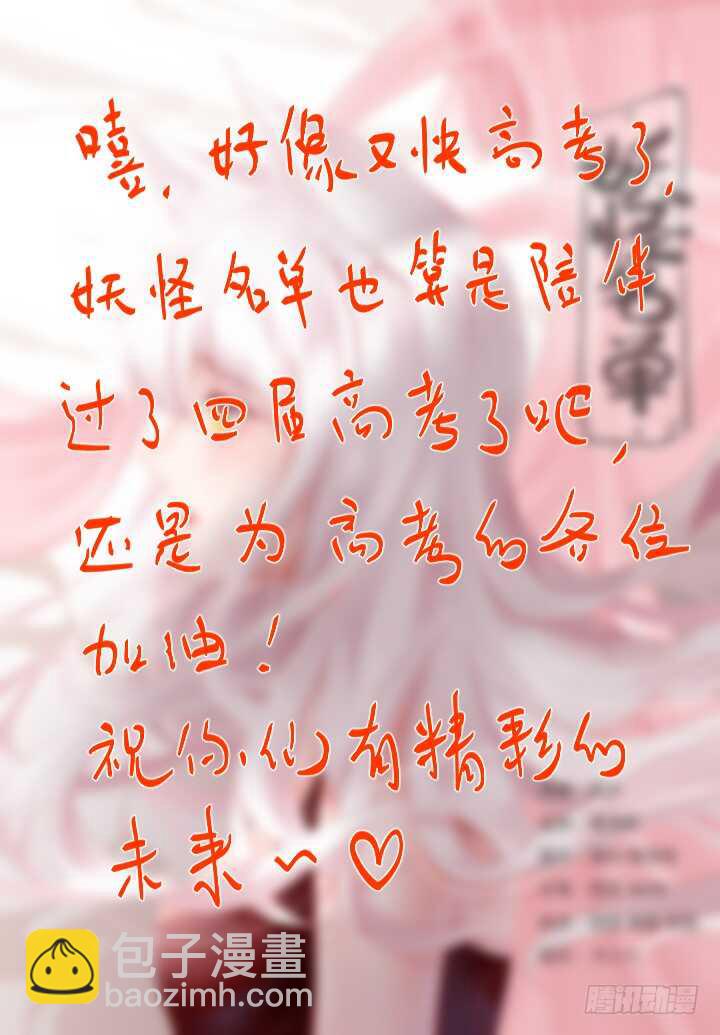 嘻，好像又快高考了，
妖怪名单也算是陪伴
过了四届高考了吧，
还是为高考的各位
加油！
祝你们有精彩的
未来~♡
妖怪名单
包子漫畫
baozimh.com
腾讯动漫